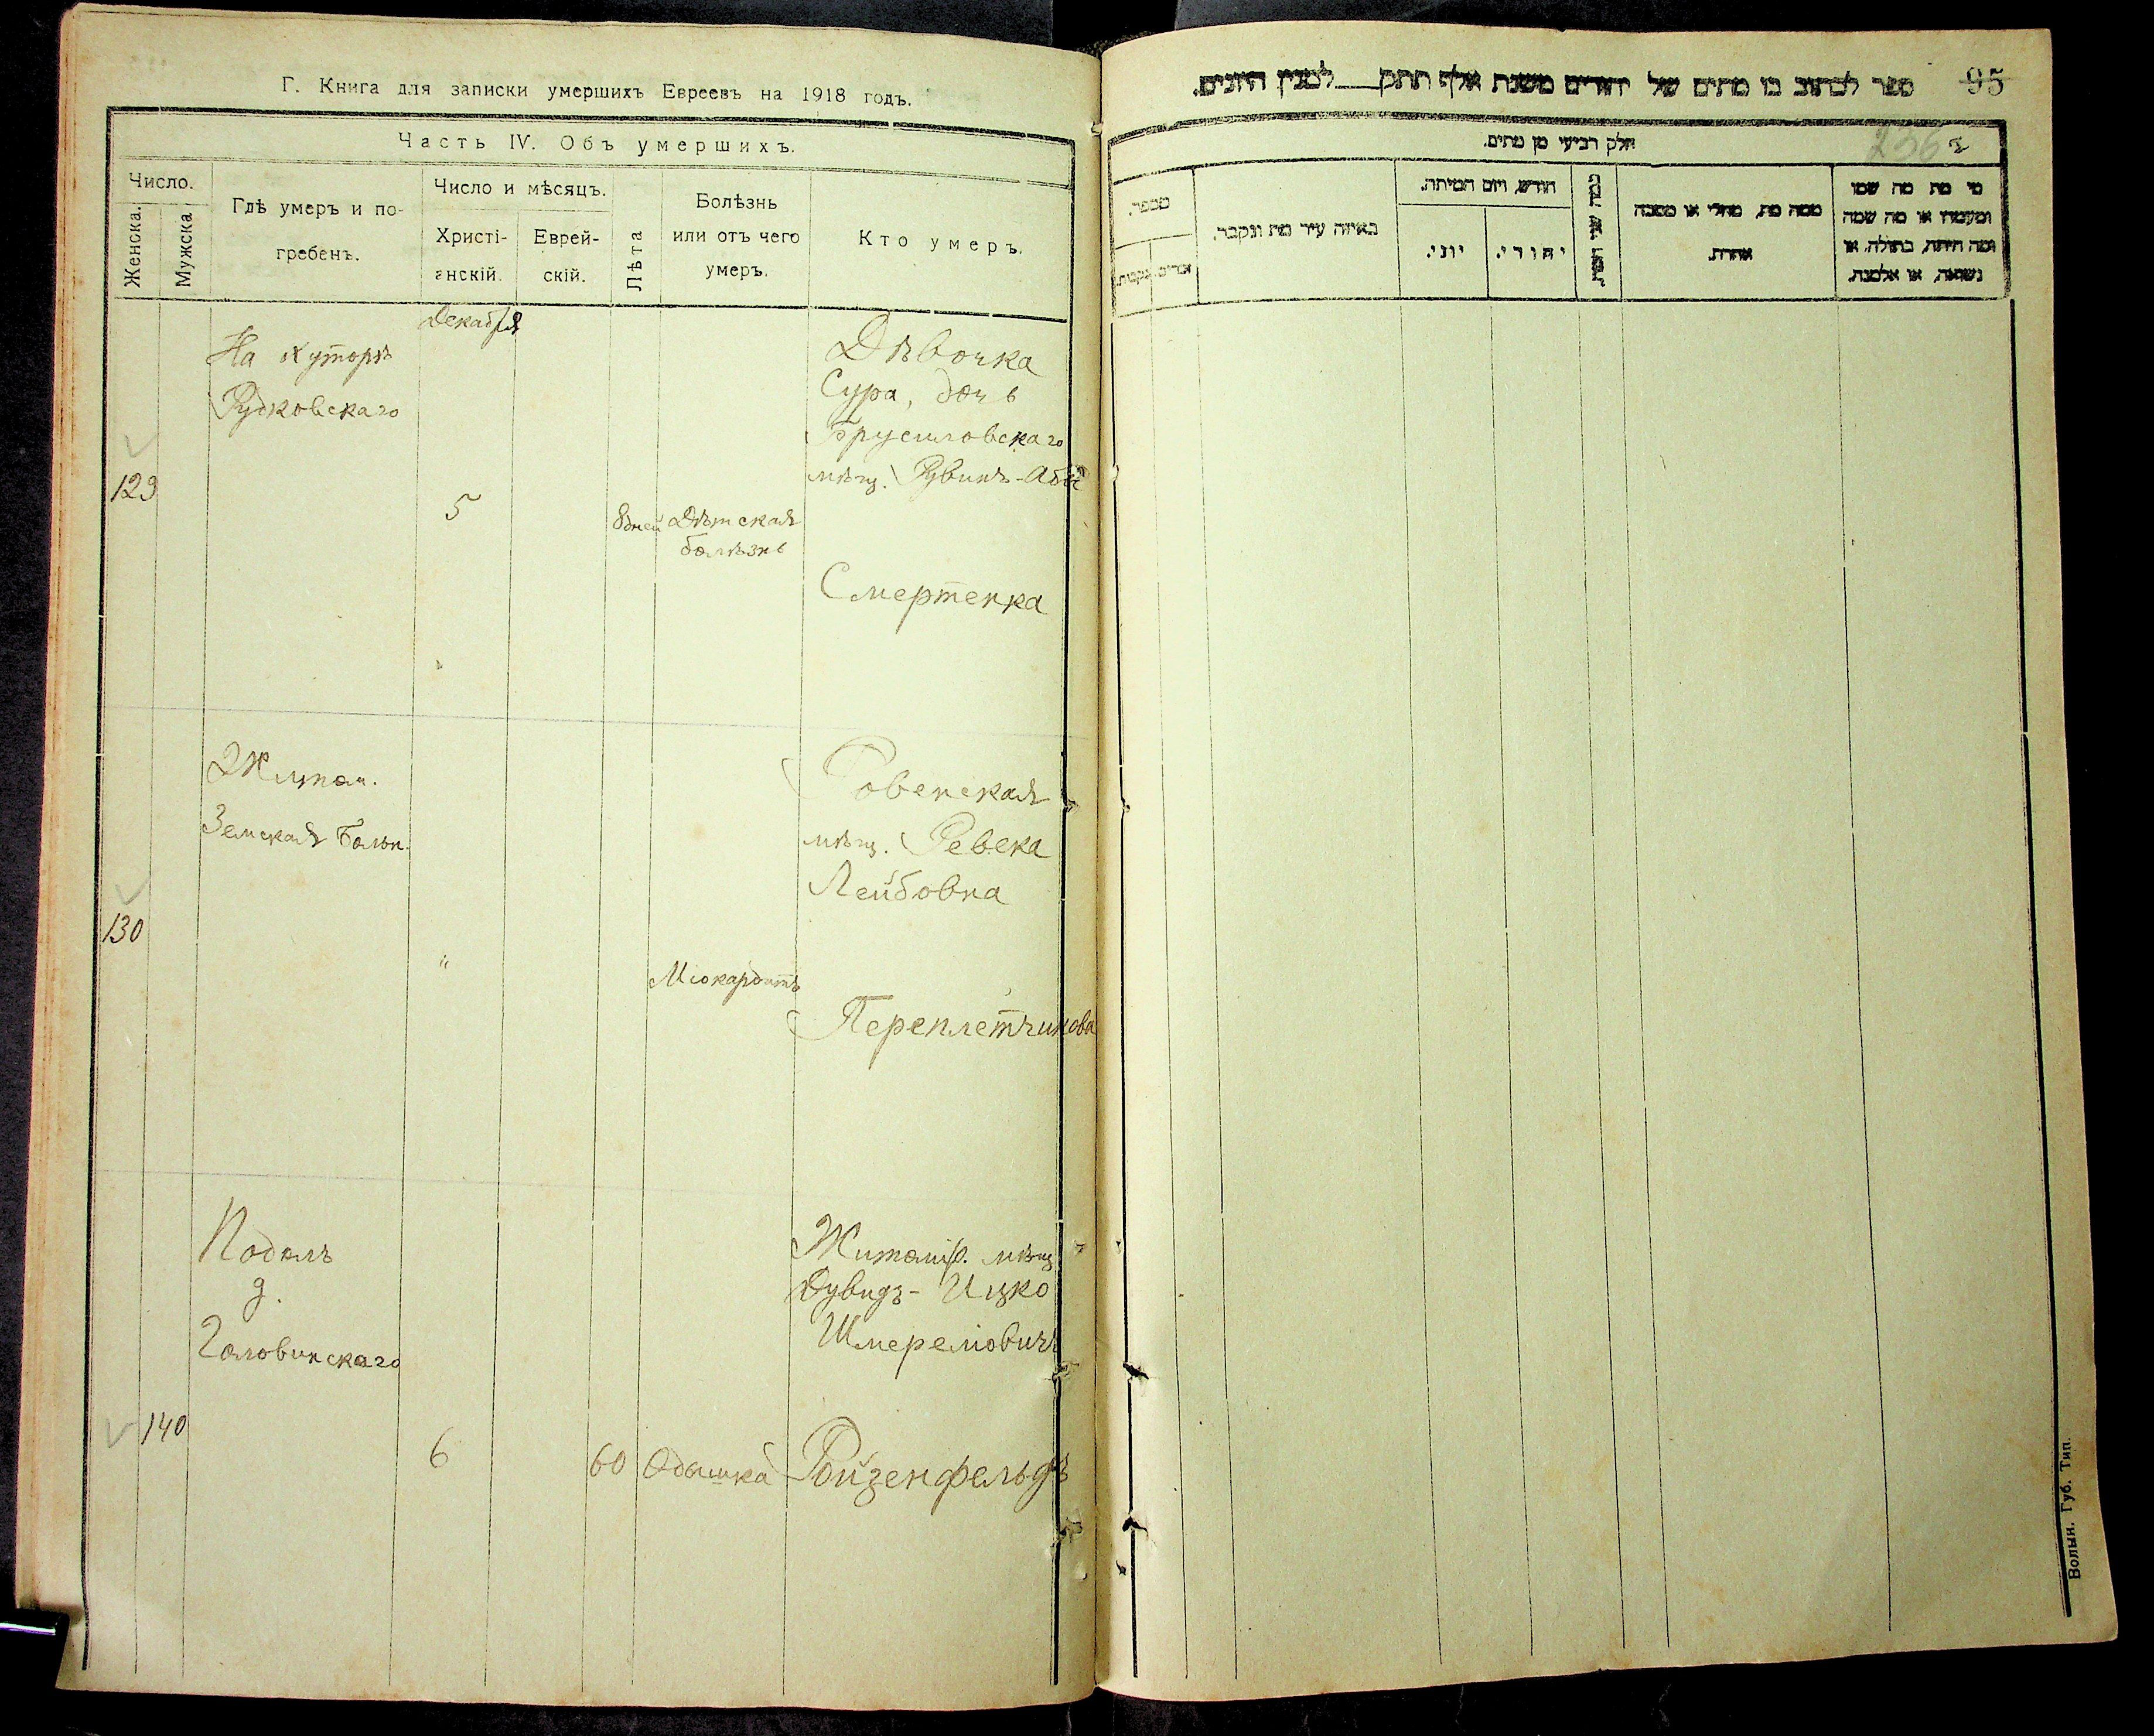 Г. Книга для записки умершихъ Евреевъ на 1918 годъ.
Часть IV. Объ умершихъ.
Число.
Женска.
Мужска
Гдѣ умеръ и по-
гребенъ.
Число и мѣсяцъ.
Христі-
анскій.
Еврей-
скій.
Лѣта
Болѣзнь
или отъ чего
умеръ.
Кто умеръ.
Декабря
129
На хуторѣ
Рудковскаго
5
8 дней
Дѣтская
болѣзнь
Дѣвочка
Сура, дочь
Брусиловскаго
мѣщ. Рувинъ-Аба
Смертенка
130
Житом.
Земская Больн.
"
Міокардитъ
Ровенская
мѣщ. Ревека
Лейбовна
Переплетчикова
140
Подолъ
д.
Головинскаго
6
60
Одышка
Житомір. мѣщ
Дувидъ-Ицко
Шмереловичъ
Ройзенфельдъ
ספר לכתוב בו מתים של יהודים משנת אלף תתק לטנין היונים.
95
236
חלק רביעי מן מתים.
מספר.
זכרים
נקבות.
באיזה עיר מת ונקבר.
חודש, ויום המיתה.
יוני.
יהודי.
ממה מת, מחלי או מסבה
אחרת.
מי מת מה שמו
ומעמדו או מה שמה
ומה היתה, בתולה, או
נשואה, או אלמנה.
Волын. Губ. Тип.